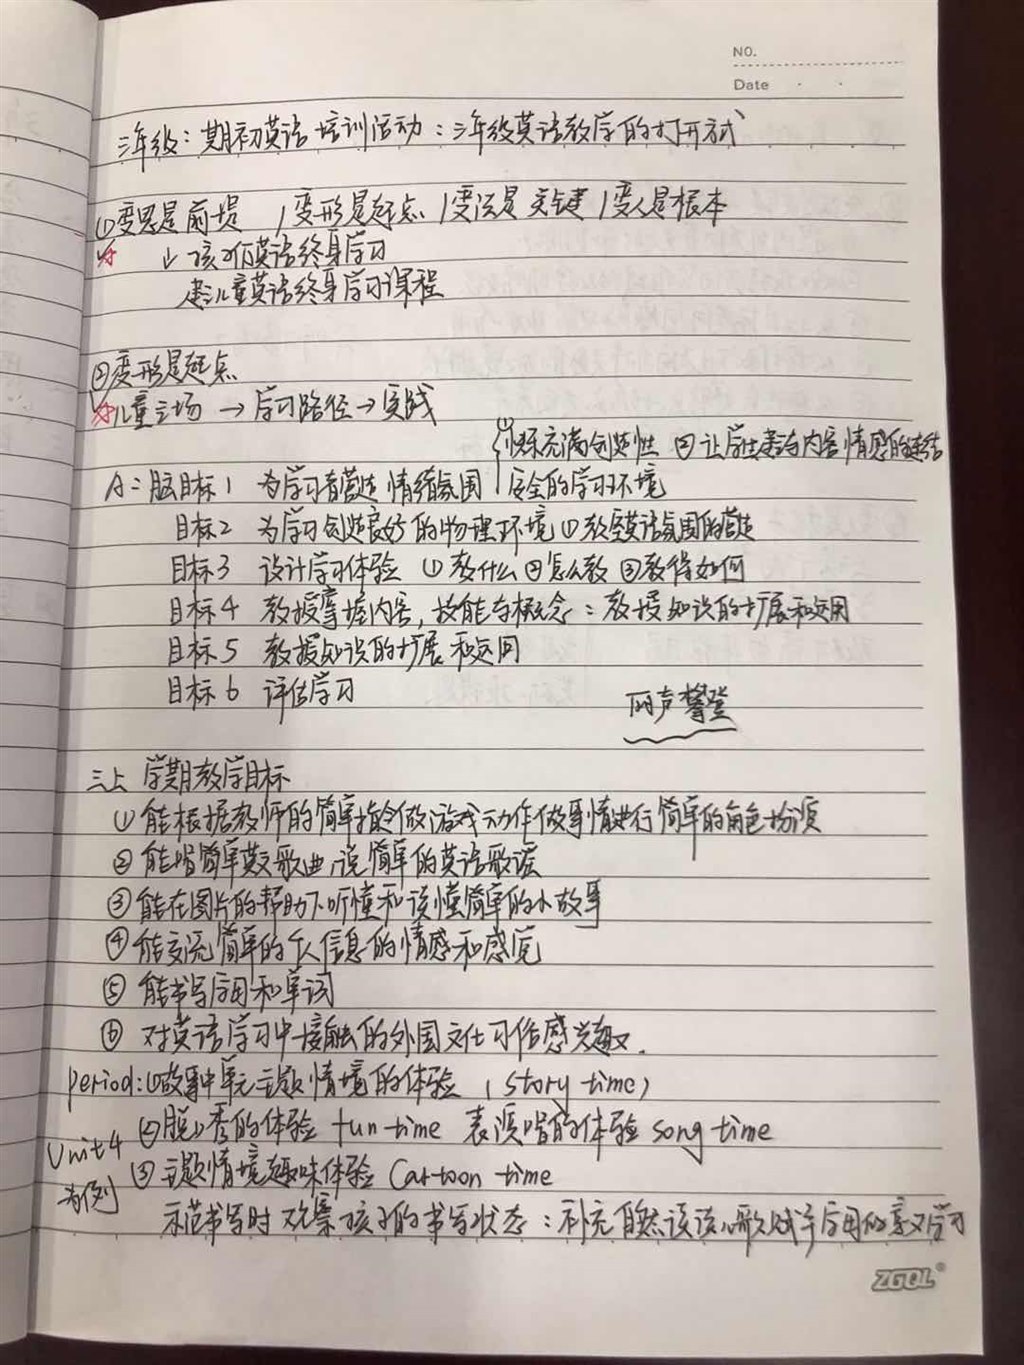 NO.
Date
三年级：期初英语培训活动：三年级英语教学的打开式
①变思是前提 变形是起点 变法是关键 变人是根本
↓孩子们英语终身学习
建儿童英语终身学习课程
②变形是起点
儿童立场→学习路径→实战
①快乐充满创造性 ②让学生建立与内容情感的连结
A：脑目标1 为学习者营造情绪氛围 安全的学习环境
目标2 为学习创造良好的物理环境①教室英语氛围的营造
目标3 设计学习体验 ①教什么②怎么教③教得如何
目标4 教授掌握内容，技能与概念：教授知识的扩展和运用
目标5 教授知识的扩展和运用
目标6 评估学习
丽声攀登
三上 学期教学目标
①能根据教师的简单指令做游戏动作做事情进行简单的角色扮演
②能唱简单英文歌曲，说简单的英语歌谣
③能在图片的帮助下听懂和读懂简单的小故事
④能交流简单的个人信息的情感和感觉
⑤能书写字母和单词
⑥对英语学习中接触的外国文化习俗感兴趣.
period:①故事中单元主题情境的体验（story time）
②脱口秀的体验 fun time 表演唱的体验 song time
Unit4
③主题情境趣味体验 Cartoon time
为例
示范书写时观察孩子的书写状态：补充自然 字母的 学习
ZGQL®